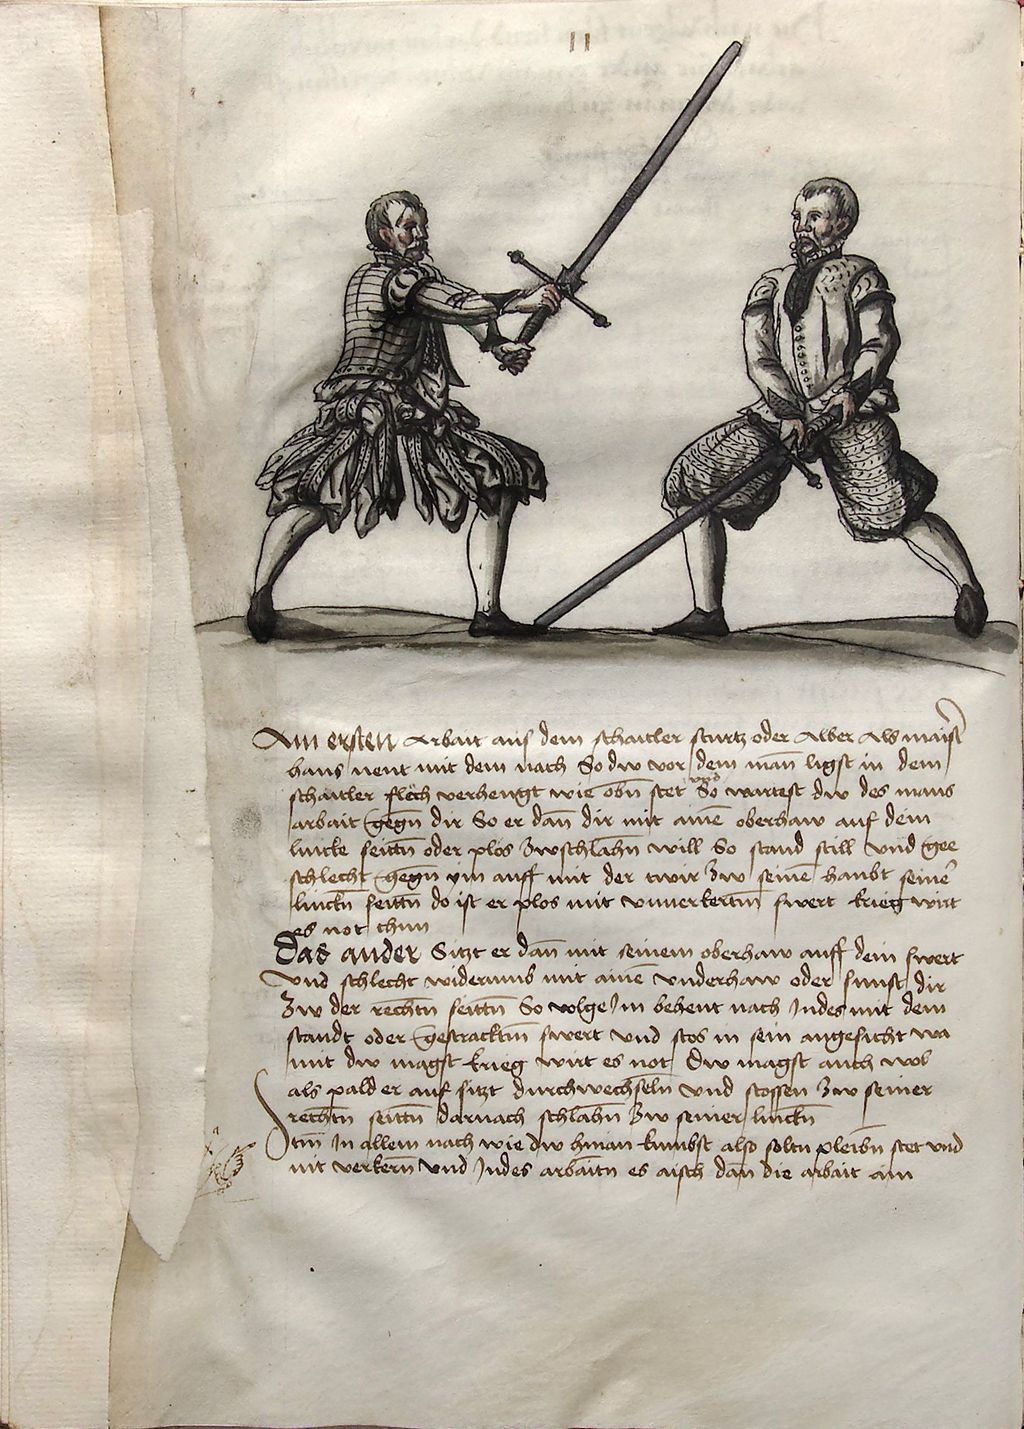 11
Am ersten Arbait aus dem schaitler sturtz oder Alber Als maist
hans nent mit dem nach So dw vor dem man̄ ligst in dem
schaitler flech verhengt wie obn̄ stet vnd So wartest dw des mans
arbait gegn̄ dir So er dan̄ dir mit ainē oberhaw auf dein
lincke seittn̄ oder plos zwschlahn̄ will So stand still vnd gee
schlecht gegn̄ ym auff mit der twir zw seinē haubt seinē
linckn̄ seittn̄ do ist er plos mit vnuerkertm̄ swert krieg wirt
es not thun
Das ander Sitzt er dan̄ mit seinem oberhaw auff dein swert
vnd schlecht widerumb mit ainē vnderhaw oder sunst dir
zw der rechtn̄ seittn̄ So volge Im behent nach Indes mit dem
standt oder gestracktm̄ swert vnd stos in sein angesicht wa
mit dw magst krieg wirt es not Dw magst auch wol
als pald er auf sitzt durchwechseln̄ vnd stossen zw seiner
rechtn̄ seittn̄ darnach schlahn̄ zw seiner linckn̄
Itm̄ In allem nach wie dw hinan kumbst also soltu pleibn̄ stet vnd
nit verkern̄ vnd Indes arbaitn̄ es aisch dan̄ die arbait ain